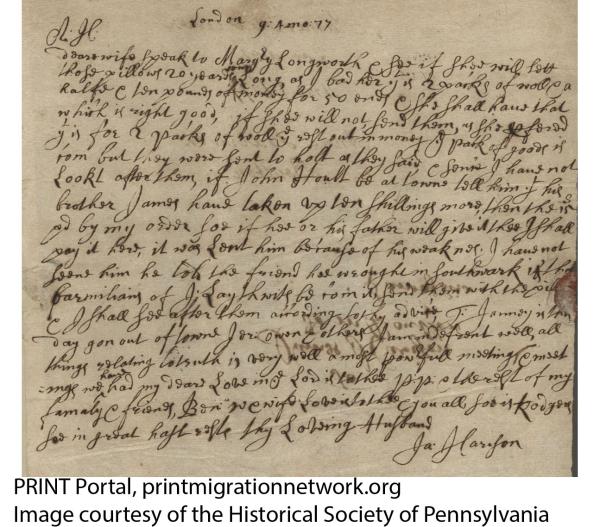 London 9: 4mo: 77
A: H:
deare wife speak to Margry Longworth & see if shee will lett
those pillows 20 yeards long, as I bad her yt is 2 packs of wolle a
halfe & ten pounds of money for 50 ends & she shall have that
which is right good, if shee will not send them, as she offered
yt is for 2 packs of wolle ye rest out in money ye pack of goods is
com but they were sent to holt as they said & senie I have not
Lookt after them, if John Hoult be at towne tell him yt his
brother James have taken up ten shillings more, then the is
pd by my order soe if hee or his father will give it thee I shall
pay it here, it was Lent him because of his weaknes, I have not
seene him he told the friend hee wrought in southwark
barmilians of be com in, send them with the
& I shall see after them according to thy advice T: Janney is this
day gon out of towne Jer: owen & others Jam: indefrent well, all
things relating to truth is very well & most powrfull meetings & meet
ings we had my deare Love in ye Lord is to thee P: P: & the rest of my
famaly & friends, Ben: & wife Love is to thee & you all, soe is Rodgers
soe in great hast rests thy Loveing Husband
Ja: Harison
PRINT Portal, printmigrationnetwork.org
Image courtesy of the Historical Society of Pennsylvania